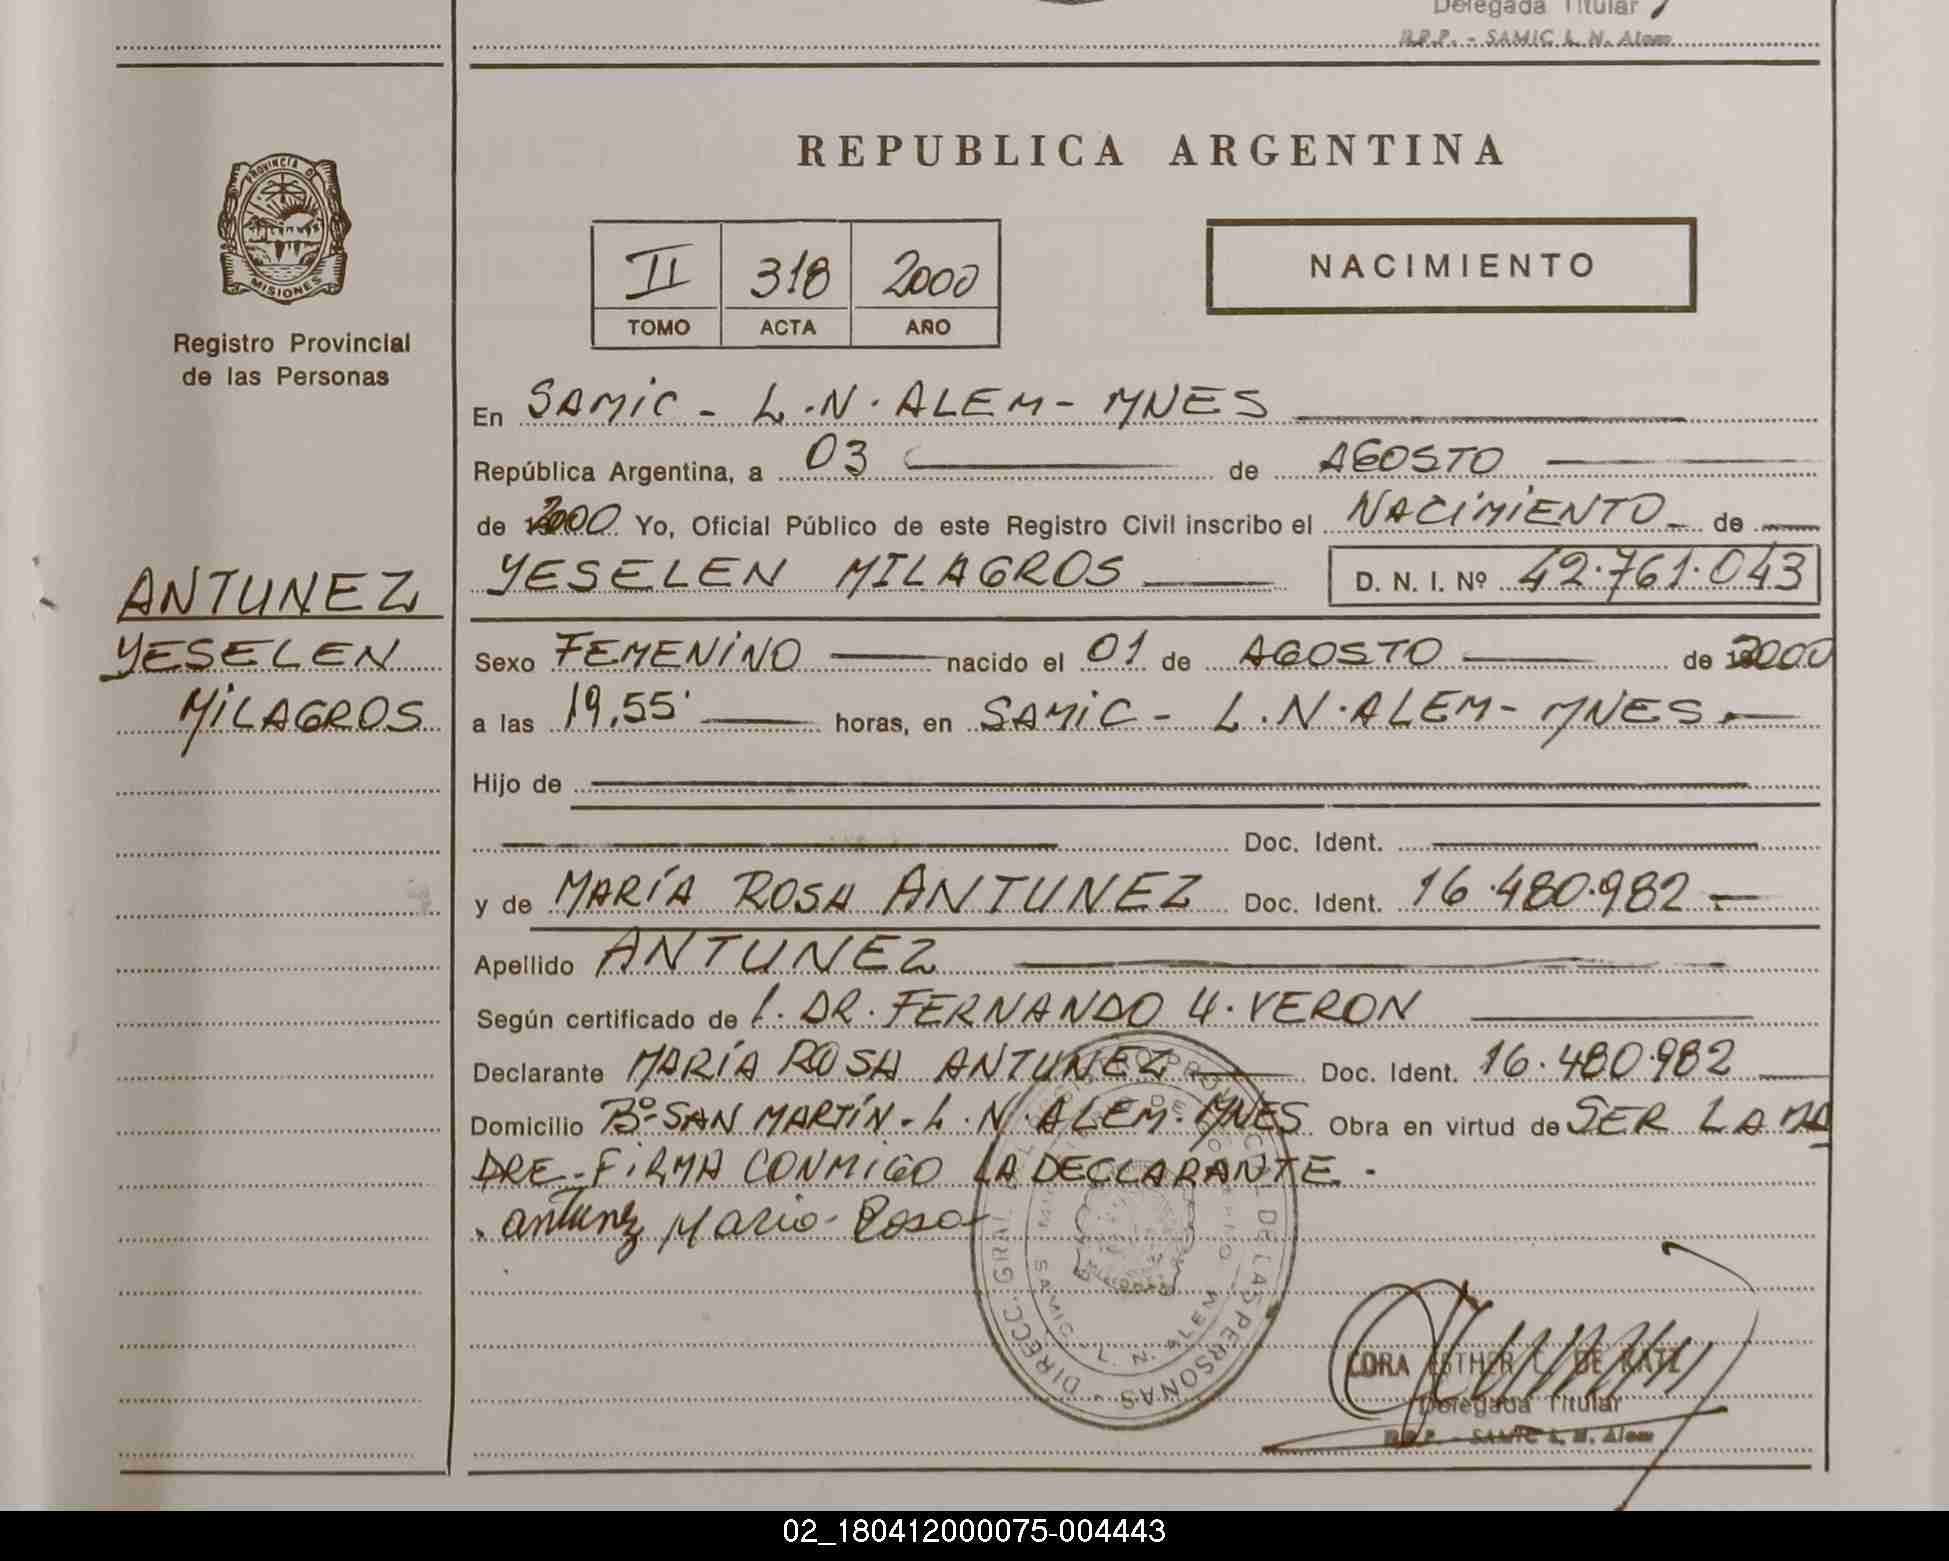 Delegada Titular
R.P.P. - SAMIC L. N. Alem
REPUBLICA ARGENTINA
PROVINCIA DE
MISIONES
Registro Provincial
de las Personas
II 318 2000
TOMO ACTA AÑO
NACIMIENTO
En SAMIC - L.N. ALEM - MNES
República Argentina, a 03 de AGOSTO
de 2000 Yo, Oficial Público de este Registro Civil inscribo el NACIMIENTO de
YESELEN MILAGROS D. N. I. Nº 42.761.043
ANTUNEZ
YESELEN
MILAGROS
Sexo FEMENINO nacido el 01 de AGOSTO de 2000
a las 19.55' horas, en SAMIC - L.N. ALEM - MNES.
Hijo de
Doc. Ident.
y de MARÍA ROSA ANTUNEZ Doc. Ident. 16.480.982
Apellido ANTUNEZ
Según certificado de l. DR. FERNANDO U. VERON
Declarante MARÍA ROSA ANTUNEZ Doc. Ident. 16.480.982
Domicilio Bº SAN MARTÍN - L.N. ALEM - MNES Obra en virtud de SER LA MA
DRE - FIRMA CONMIGO LA DECLARANTE.
Antunez Maria Rosa
DIRECC. GRAL. DEL REGISTRO PROVINCIAL DE LAS PERSONAS
SAMIC - L. N. ALEM
ESTHER C. DE KATZ
Delegada Titular
R.P.P. - SAMIC L. N. Alem
02_180412000075-004443